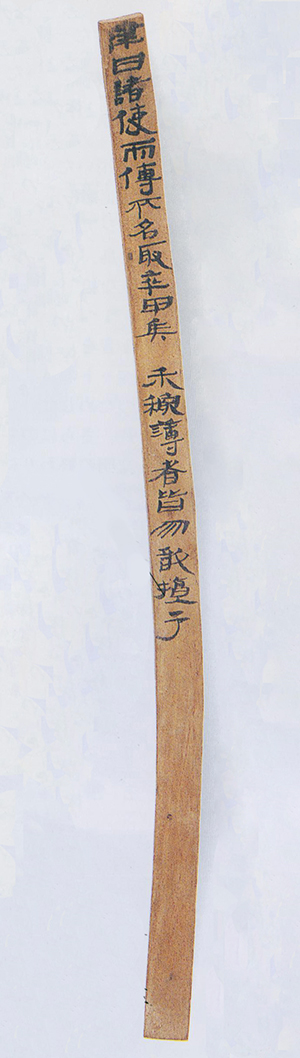 律曰諸使而傳不名取卒甲兵 禾稼簿者皆勿敢擅予